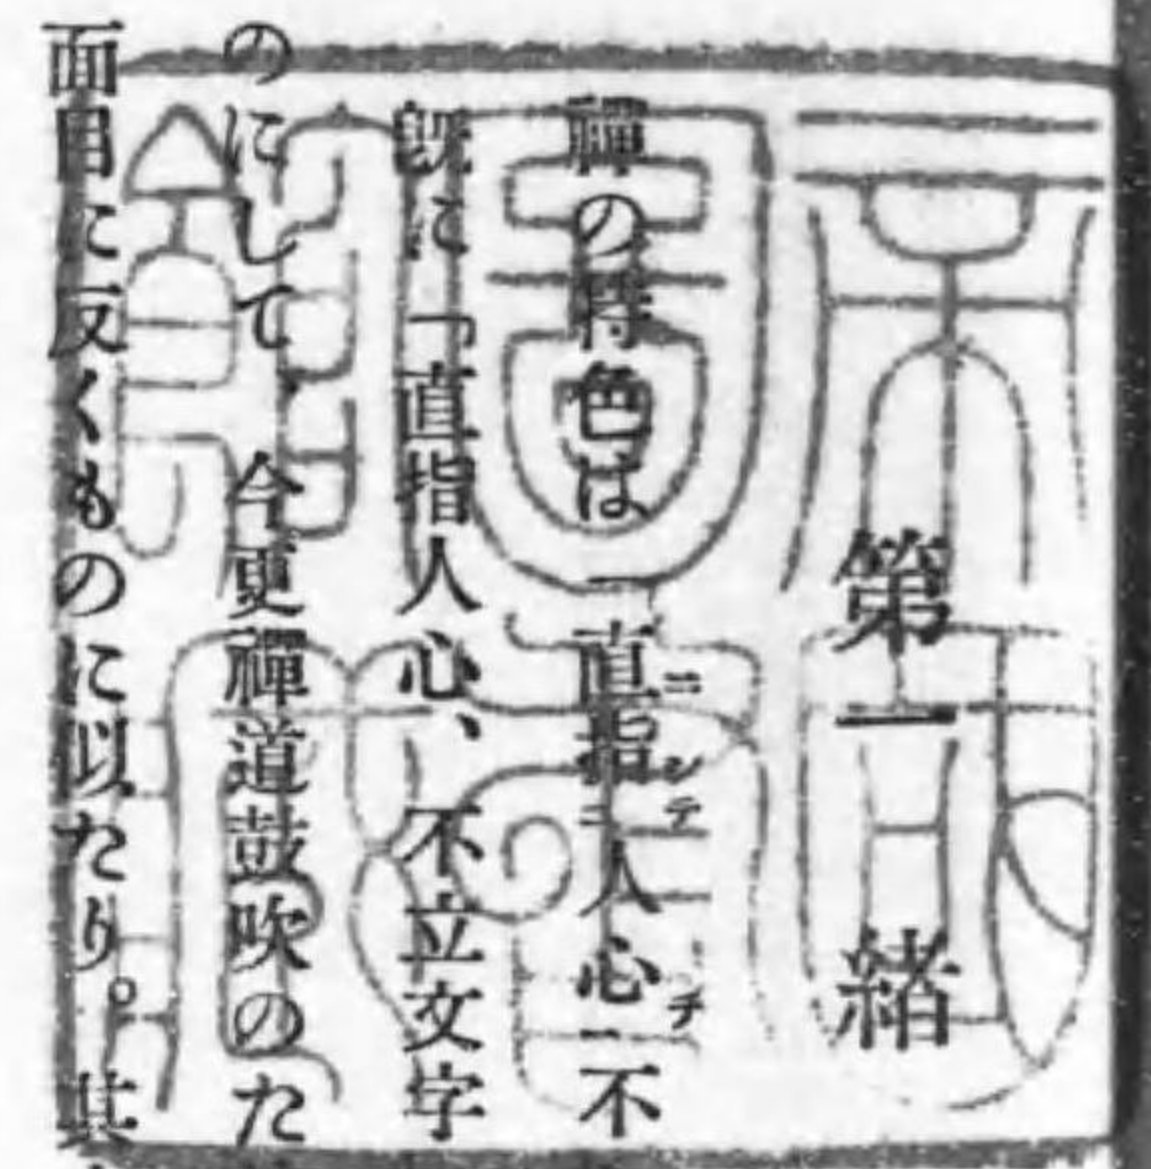 第一緒
禪の特色は「直指人心不
既に「直指人心、不立文字
のにして、今更禪道鼓吹のた
面目に反くものに似たり。其